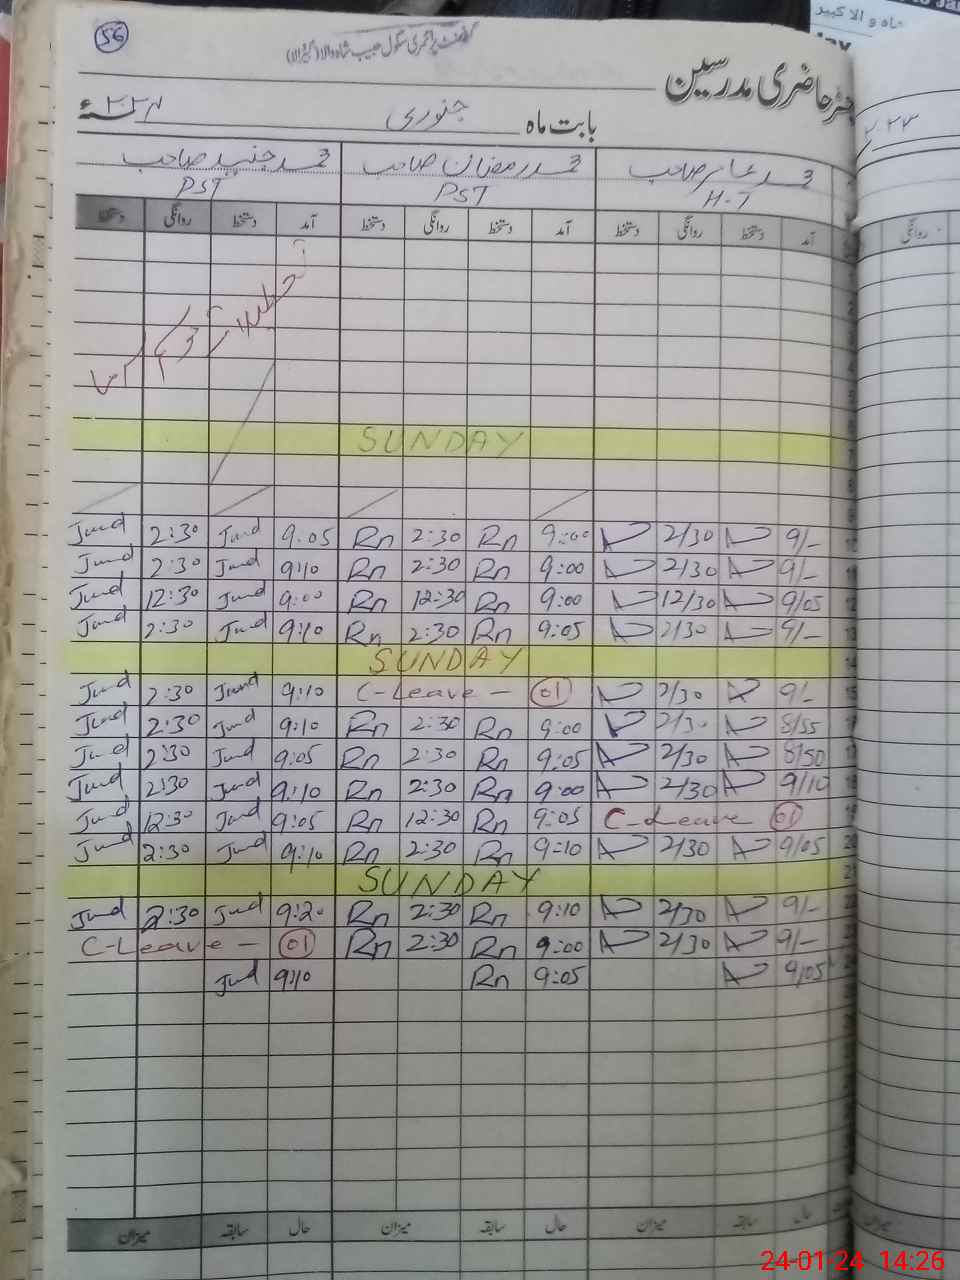 56
گورنمنٹ پرائمری سکول حبیب شاہ والا
رجسٹر حاضری مدرسین
بابت ماہ جنوری ۲۰۲۴ء
محمد عامر صاحب محمد رمضان صاحب محمد جنید صاحب
H-T PST PST
آمد دستخط روانگی دستخط آمد دستخط روانگی دستخط آمد دستخط روانگی دستخط
تعطیلات موسم سرما
SUNDAY
Jund 2:30 Jund 9.05 Rn 2:30 Rn 9:00 2/30 9/- 10
Jund 2:30 Jund 9:10 Rn 2:30 Rn 9:00 2/30 9/- 11
Jund 12:30 Jund 9:00 Rn 12:30 Rn 9:00 12/30 9/05 12
Jund 2:30 Jund 9:10 Rn 2:30 Rn 9:05 2/30 9/- 13
SUNDAY 14
Jund 2:30 Jund 9:10 C-Leave - 01 2/30 9/- 15
Jund 2:30 Jund 9:10 Rn 2:30 Rn 9:00 2/30 8/55
Jund 2:30 Jund 9:05 Rn 2:30 Rn 9:05 2/30 8/50 17
Jund 2:30 Jund 9:10 Rn 2:30 Rn 9:00 2/30 9/10 18
Jund 12:30 Jund 9:05 Rn 12:30 Rn 9:05 C-Leave 01 19
Jund 2:30 Jund 9:10 Rn 2:30 Rn 9:10 2/30 9/05 20
SUNDAY 21
Jund 2:30 Jund 9:20 Rn 2:30 Rn 9:10 2/30 9/-
C-Leave - 01 Rn 2:30 Rn 9:00 2/30 9/-
Jund 9:10 Rn 9:05 9/05
حال سابقہ میزان حال سابقہ میزان حال سابقہ میزان
24-01-24 14:26